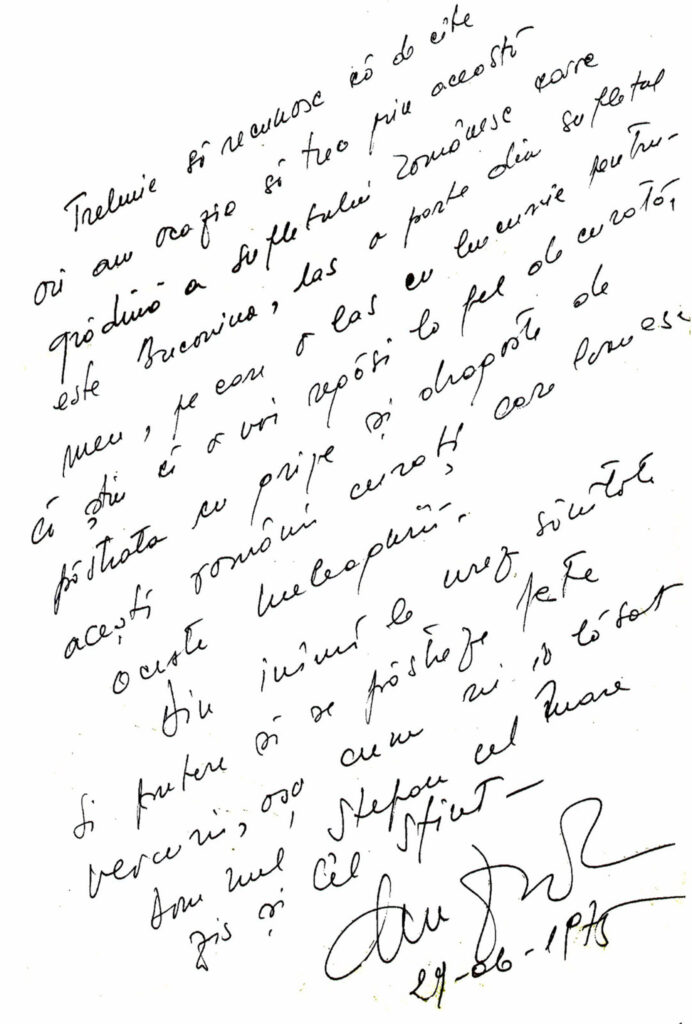 Trebuie să recunosc că de cîte
ori am ocazia să trec prin această
grădină a sufletului românesc care
este Bucovina, las o parte din sufletul
meu, pe care o las cu bucurie pentru-
că știu că o voi regăsi la fel de curată,
păstrată cu grije și dragoste de
acești români curați care locuiesc
aceste meleaguri.
Din inimă le urez sănătate
și putere și se păstreze peste
veacuri, așa cum ni i-o lăsat
Domnul, Ștefan cel Mare
zis și Cel Sfînt –
29-06-1975